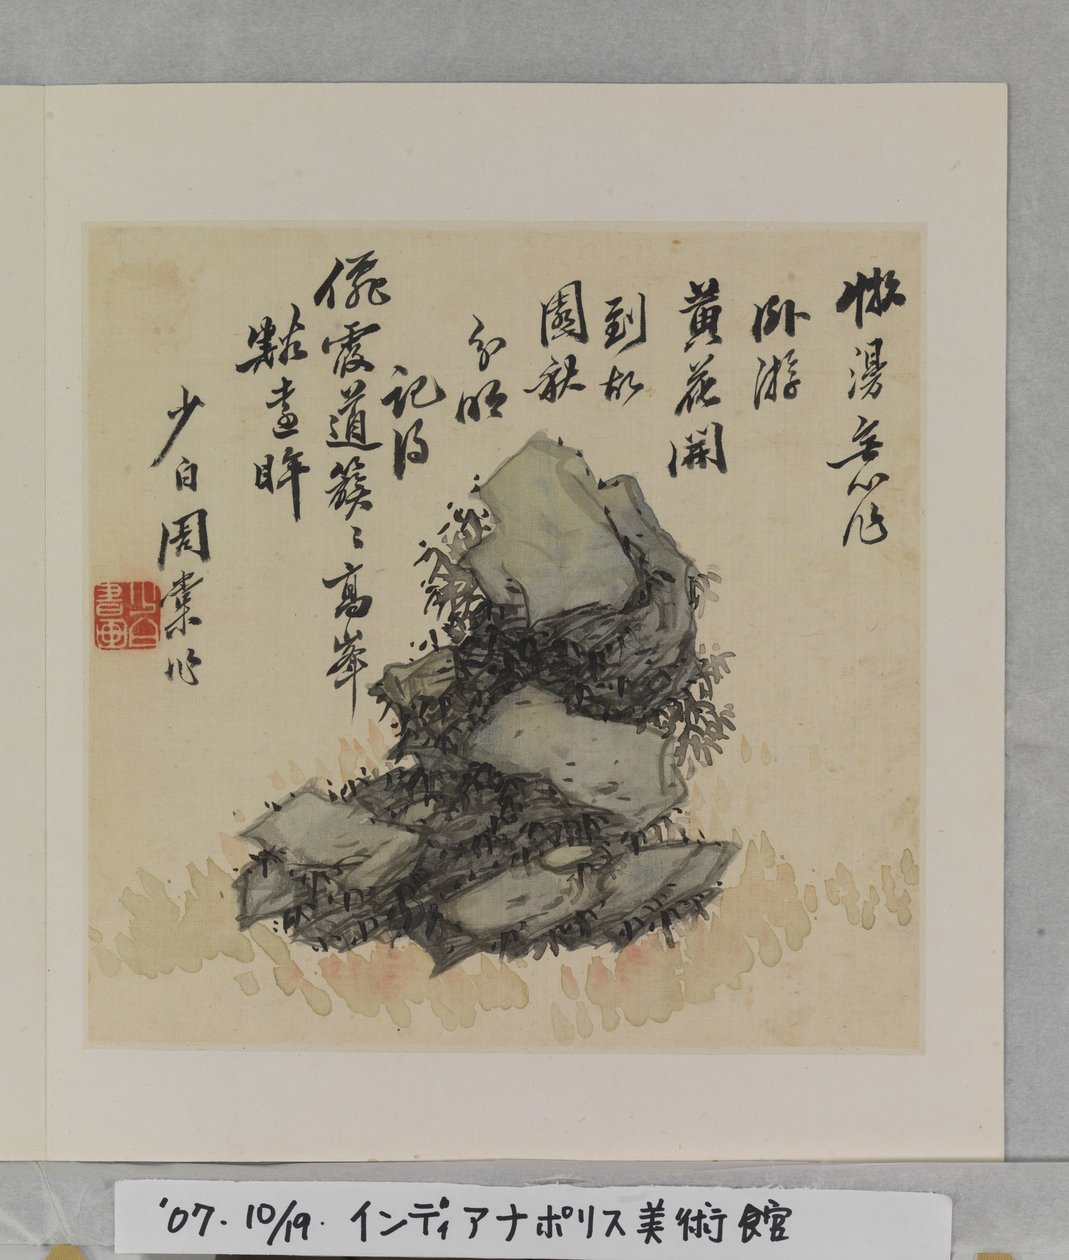 懶漫無心作
卧游
黄花開
到故
園秋
分明
記得
僊霞道簇〻高峯
點眸
少白周棠作
少白
書画
'07.10/19.インディアナポリス美術館